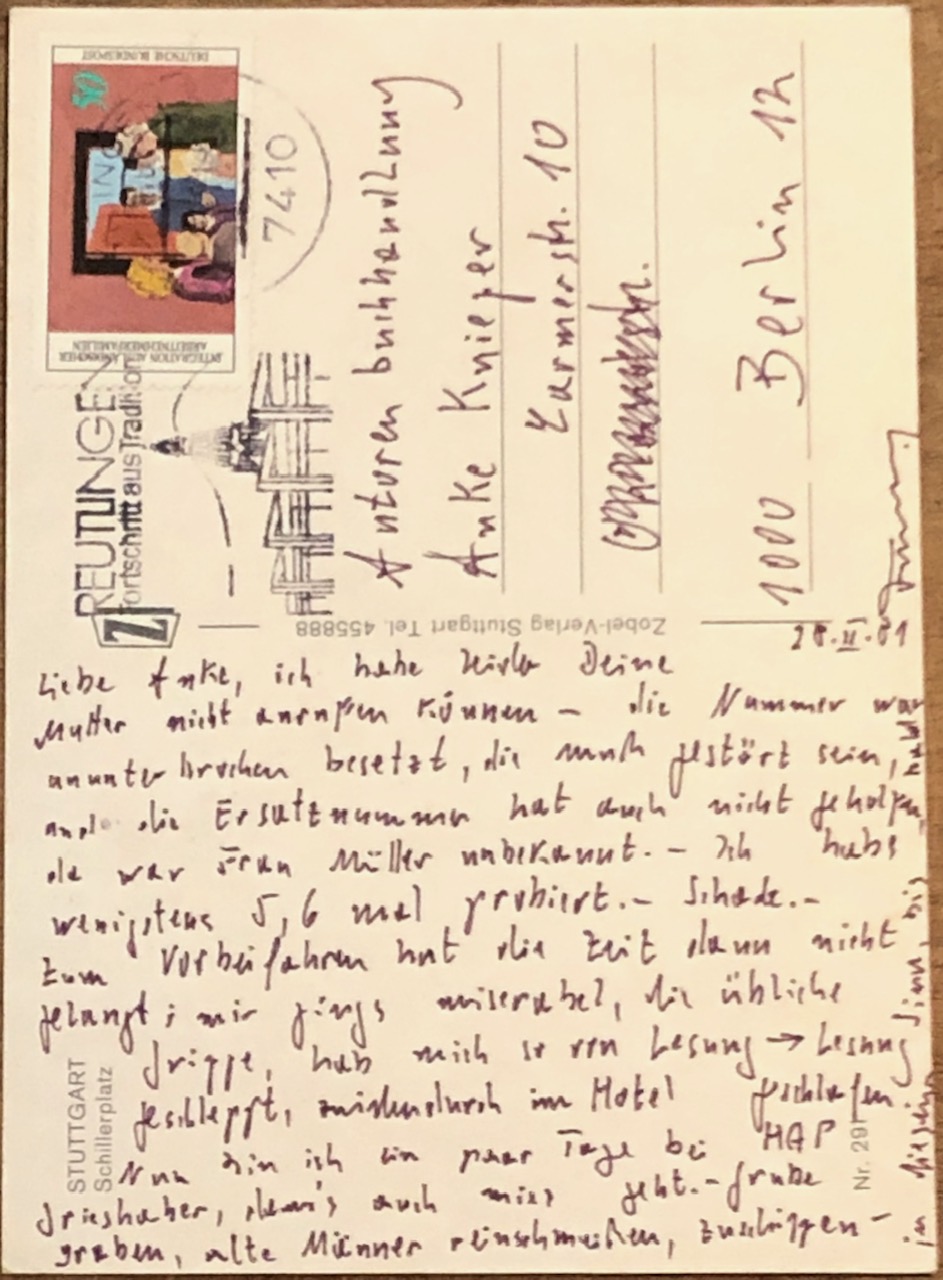 DEUTSCHE BUNDESPOST
50
INTEGRATION AUSLÄNDISCHER
ARBEITNEHMERFAMILIEN
7410
REUTLINGEN
Fortschritt aus Tradition
Z
Zobel-Verlag Stuttgart Tel. 455888
Autorenbuchhandlung
Anke Knieper
Carmerstr. 10
1000 Berlin 12
28.II.81
Liebe Anke, ich habe leider Deine
Mutter nicht anrufen können – die Nummer war
ununterbrochen besetzt, die muß gestört sein,
und die Ersatznummer hat auch nicht geholfen,
da war Frau Müller unbekannt. – Ich habs
wenigstens 5, 6 mal probiert. – Schade. –
Zum Vorbeifahren hat die Zeit dann nicht
gelangt; mir gings miserabel, die übliche
Grippe, hab mich so von Lesung → Lesung
geschleppt, zwischendurch im Hotel geschlafen
Nun bin ich ein paar Tage bei HAP
Grieshaber, dem's auch mies geht. – Grube
graben, alte Männer reinschmeißen, zuschippen –
in diesem Sinn, bis bald
STUTTGART
Schillerplatz
Nr. 291